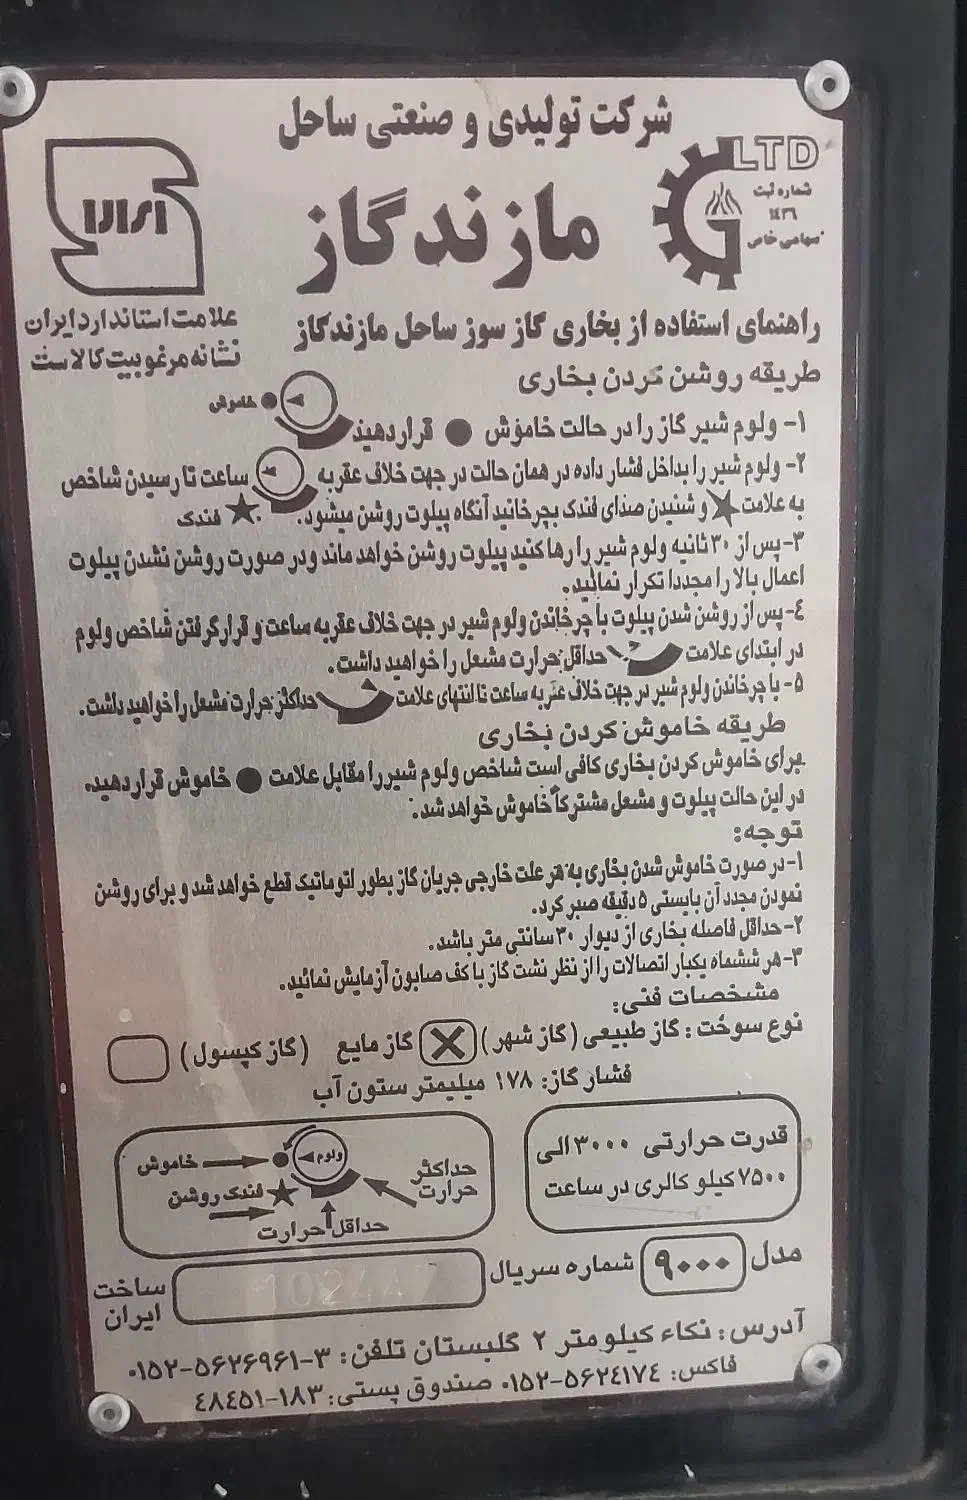 شرکت تولیدی و صنعتی ساحل
LTD
شماره ثبت
۱٤۳۶
سهامی خاص
مازندگاز
علامت استاندارد ایران
نشانه مرغوبیت کالاست
راهنمای استفاده از بخاری گاز سوز ساحل مازندگاز
طریقه روشن کردن بخاری
خاموش
۱- ولوم شیر گاز را در حالت خاموش ● قرار دهید
۲- ولوم شیر را بداخل فشار داده در همان حالت در جهت خلاف عقربه ساعت تا رسیدن شاخص
به علامت ★ و شنیدن صدای فندک بچرخانید آنگاه پیلوت روشن میشود. ★ فندک
۳- پس از ۳۰ ثانیه ولوم شیر را رها کنید پیلوت روشن خواهد ماند و در صورت روشن نشدن پیلوت
اعمال بالا را مجددا تکرار نمائید.
٤- پس از روشن شدن پیلوت با چرخاندن ولوم شیر در جهت خلاف عقربه ساعت و قرار گرفتن شاخص ولوم
در ابتدای علامت حداقل حرارت مشعل را خواهید داشت.
۵- با چرخاندن ولوم شیر در جهت خلاف عقربه ساعت تا انتهای علامت حداکثر حرارت مشعل را خواهید داشت.
طریقه خاموش کردن بخاری
برای خاموش کردن بخاری کافی است شاخص ولوم شیر را مقابل علامت ● خاموش قرار دهید.
در این حالت پیلوت و مشعل مشترکاً خاموش خواهد شد.
توجه:
۱- در صورت خاموش شدن بخاری به هر علت خارجی جریان گاز بطور اتوماتیک قطع خواهد شد و برای روشن
نمودن مجدد آن بایستی ۵ دقیقه صبر کرد.
۲- حداقل فاصله بخاری از دیوار ۳۰ سانتی متر باشد.
۳- هر ششماه یکبار اتصالات را از نظر نشت گاز با کف صابون آزمایش نمائید.
مشخصات فنی:
نوع سوخت: گاز طبیعی (گاز شهر) گاز مایع (گاز کپسول)
فشار گاز: ۱۷۸ میلیمتر ستون آب
قدرت حرارتی ۳۰۰۰ الی
۷۵۰۰ کیلو کالری در ساعت
ولوم
خاموش
حداکثر
حرارت
فندک روشن
حداقل حرارت
مدل ۹۰۰۰ شماره سریال
ساخت
ایران
آدرس: نکاء کیلومتر ۲ گلبستان تلفن: ۳-۵۶۲۶۹۶۱-۰۱۵۲
فاکس: ۵۶۲٤۱۷٤-۰۱۵۲ صندوق پستی: ۱۸۳-٤۸٤۵۱